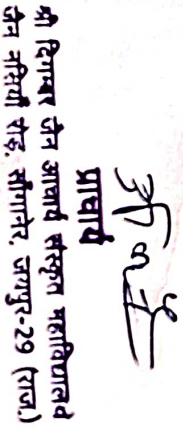 प्राचार्य
श्री दिगम्बर जैन आचार्य संस्कृत महाविद्यालय
जैन नसियाँ रोड, सांगानेर, जयपुर-29 (राज.)